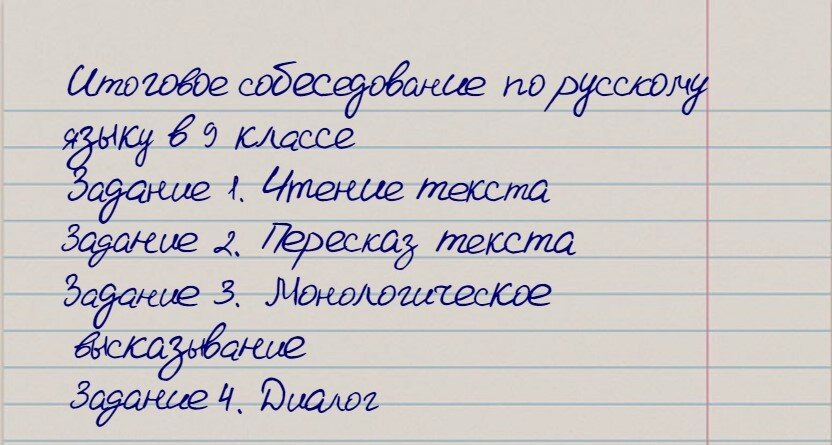 Итоговое собеседование по русскому
языку в 9 классе
Задание 1. Чтение текста
Задание 2. Пересказ текста
Задание 3. Монологическое
высказывание
Задание 4. Диалог